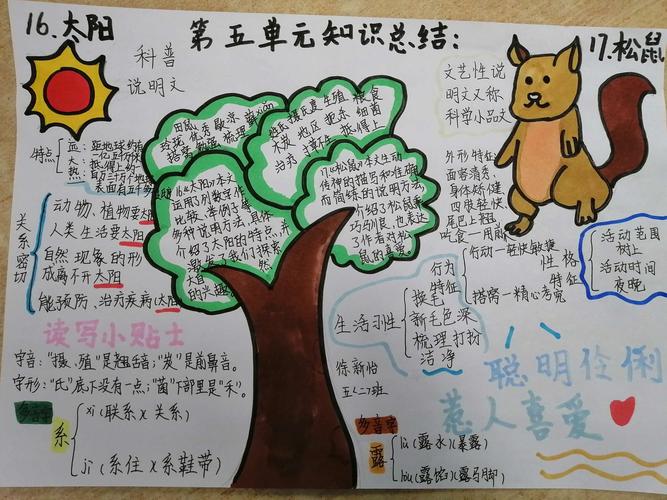 第五单元知识总结:
16.太阳
科普
说明文
特点
远:
大:
热:
表面
关系密切
动物、植物要太阳
人类生活要太阳
自然现象的形
成离不开太阳
能预防、治疗疾病(太阳
读写小贴士
字音:“摄、殖”是翘舌音;“炭”是前鼻音。
字形:“氏”底下没有一点;“菌”下部里是“禾”。
多音字
系
xì(联系)(关系)
jì(系住)(系鞋带)
田鼠
玲珑
梳理
摄氏度 生殖 粮食
木炭 地区 杀 细菌
治疗
16《太阳》本文
运用了列数字作
比较、举例子等
多种说明方法,具体
介绍了太阳的特点,并
激发了我们探索
大自然
的兴趣
17《松鼠》本文生动
传神的描写和准确
而简练的说明方法
介绍了松鼠乖
巧驯良,也表达
了作者对松
鼠的喜爱
17.松鼠
文艺性说
明文又称
科学小品文
外形特征
面容清秀
身体矫健
四肢轻快
尾巴上翘
吃食一用前
行动一轻快敏捷
性格
特征
搭窝一精心考究
活动范围
树上
活动时间
夜晚
生活习性
行为
特征
换毛
新毛色深
梳理打扮
洁净
徐新怡
五(二)班
聪明伶俐
惹人喜爱
多音字
露
lù(露水)(暴露)
lòu(露馅)(露马脚)